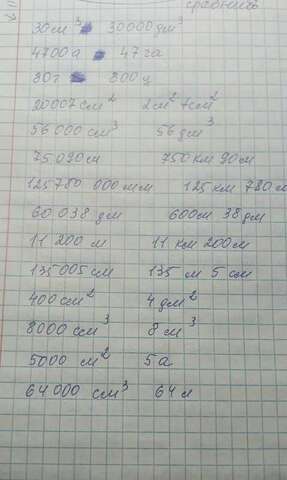 сравнить
30м³ 30000дм³
4700а 47га
80г 800ц
20007см² 2м² 7см²
56000см³ 56дм³
75090м 750км 90м
125780 000мм 125км 780м
60038дм 600м 38дм
11200м 11км 200м
135005см 135м 5см
400см² 4дм²
8000см³ 8м³
5000 м² 5а
64000 см³ 64л